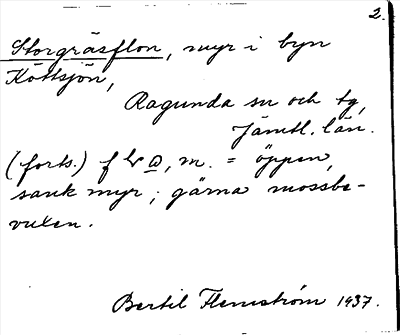 2.
Storgräsflon, myr i byn
Köttsjön,
Ragunda sn och tg,
Jämtl. län.
(forts.) f, m. = öppen,
sank myr; gärna mossbe-
vuxen.
Bertil Flemström 1937.